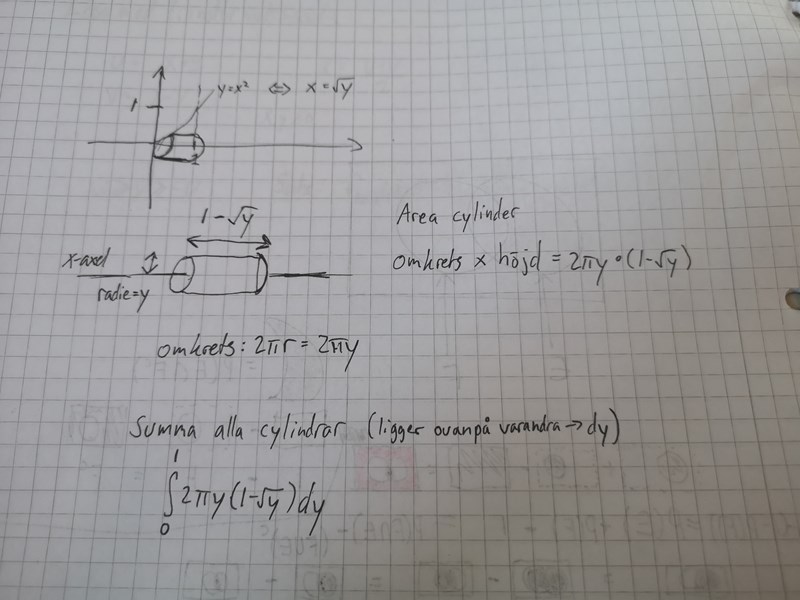 1
y=x² ⇔ x=√y
1-√y
x-axel
radie=y
Area cylinder
omkrets × höjd = 2πy·(1-√y)
omkrets: 2πr = 2πy
Summa alla cylindrar (ligger ovanpå varandra → dy)
∫₀¹ 2πy(1-√y)dy